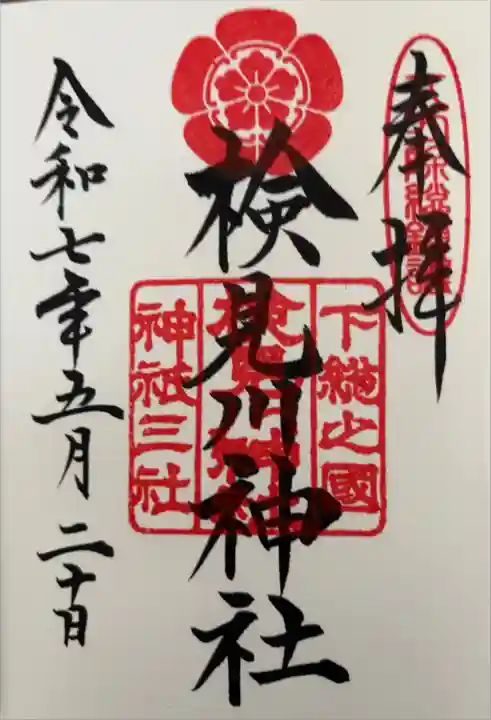 奉拝
検見川神社
下総之國
神祇三社
令和七年五月二十日